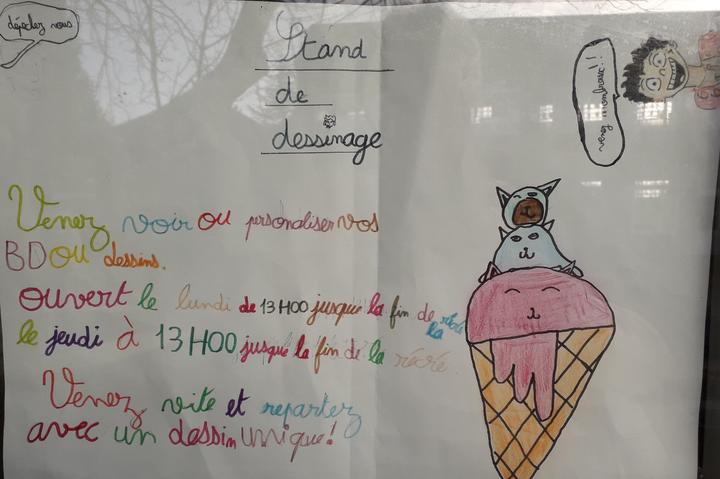 dépêchez vous
Stand
de
dessinage
venez nombreux!!
Venez voir ou personaliser vos
BD ou dessins.
Ouvert le lundi de 13H00 jusque la fin de la récré
le jeudi à 13H00 jusque la fin de la récré.
Venez vite et repartez
avec un dessin unique!